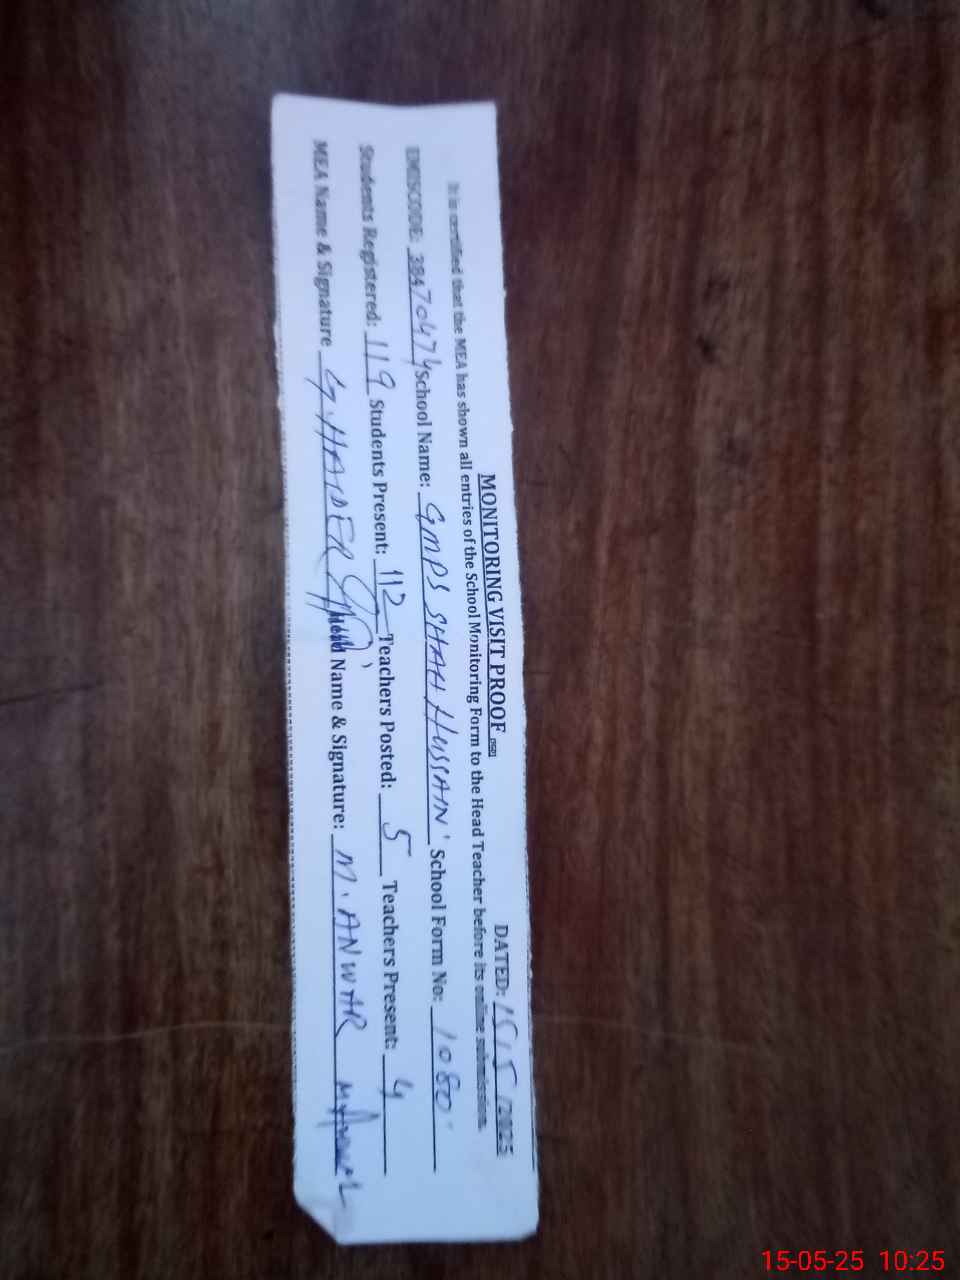 MONITORING VISIT PROOF DATED: 15/5/2025
It is certified that the MEA has shown all entries of the School Monitoring Form to the Head Teacher before its online submission.
EMISCODE: 38470474 School Name: GMPS SHAH HUSSAIN School Form No: 1080
Students Registered: 119 Students Present: 112 Teachers Posted: 5 Teachers Present: 4
MEA Name & Signature G. HAIDER Head Name & Signature: M. ANWAR
15-05-25 10:25